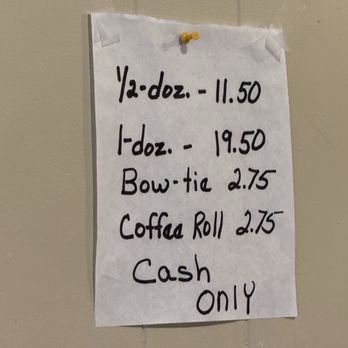 1/2-doz. - 11.50
1-doz. - 19.50
Bow-tie 2.75
Coffee Roll 2.75
Cash
ONLY